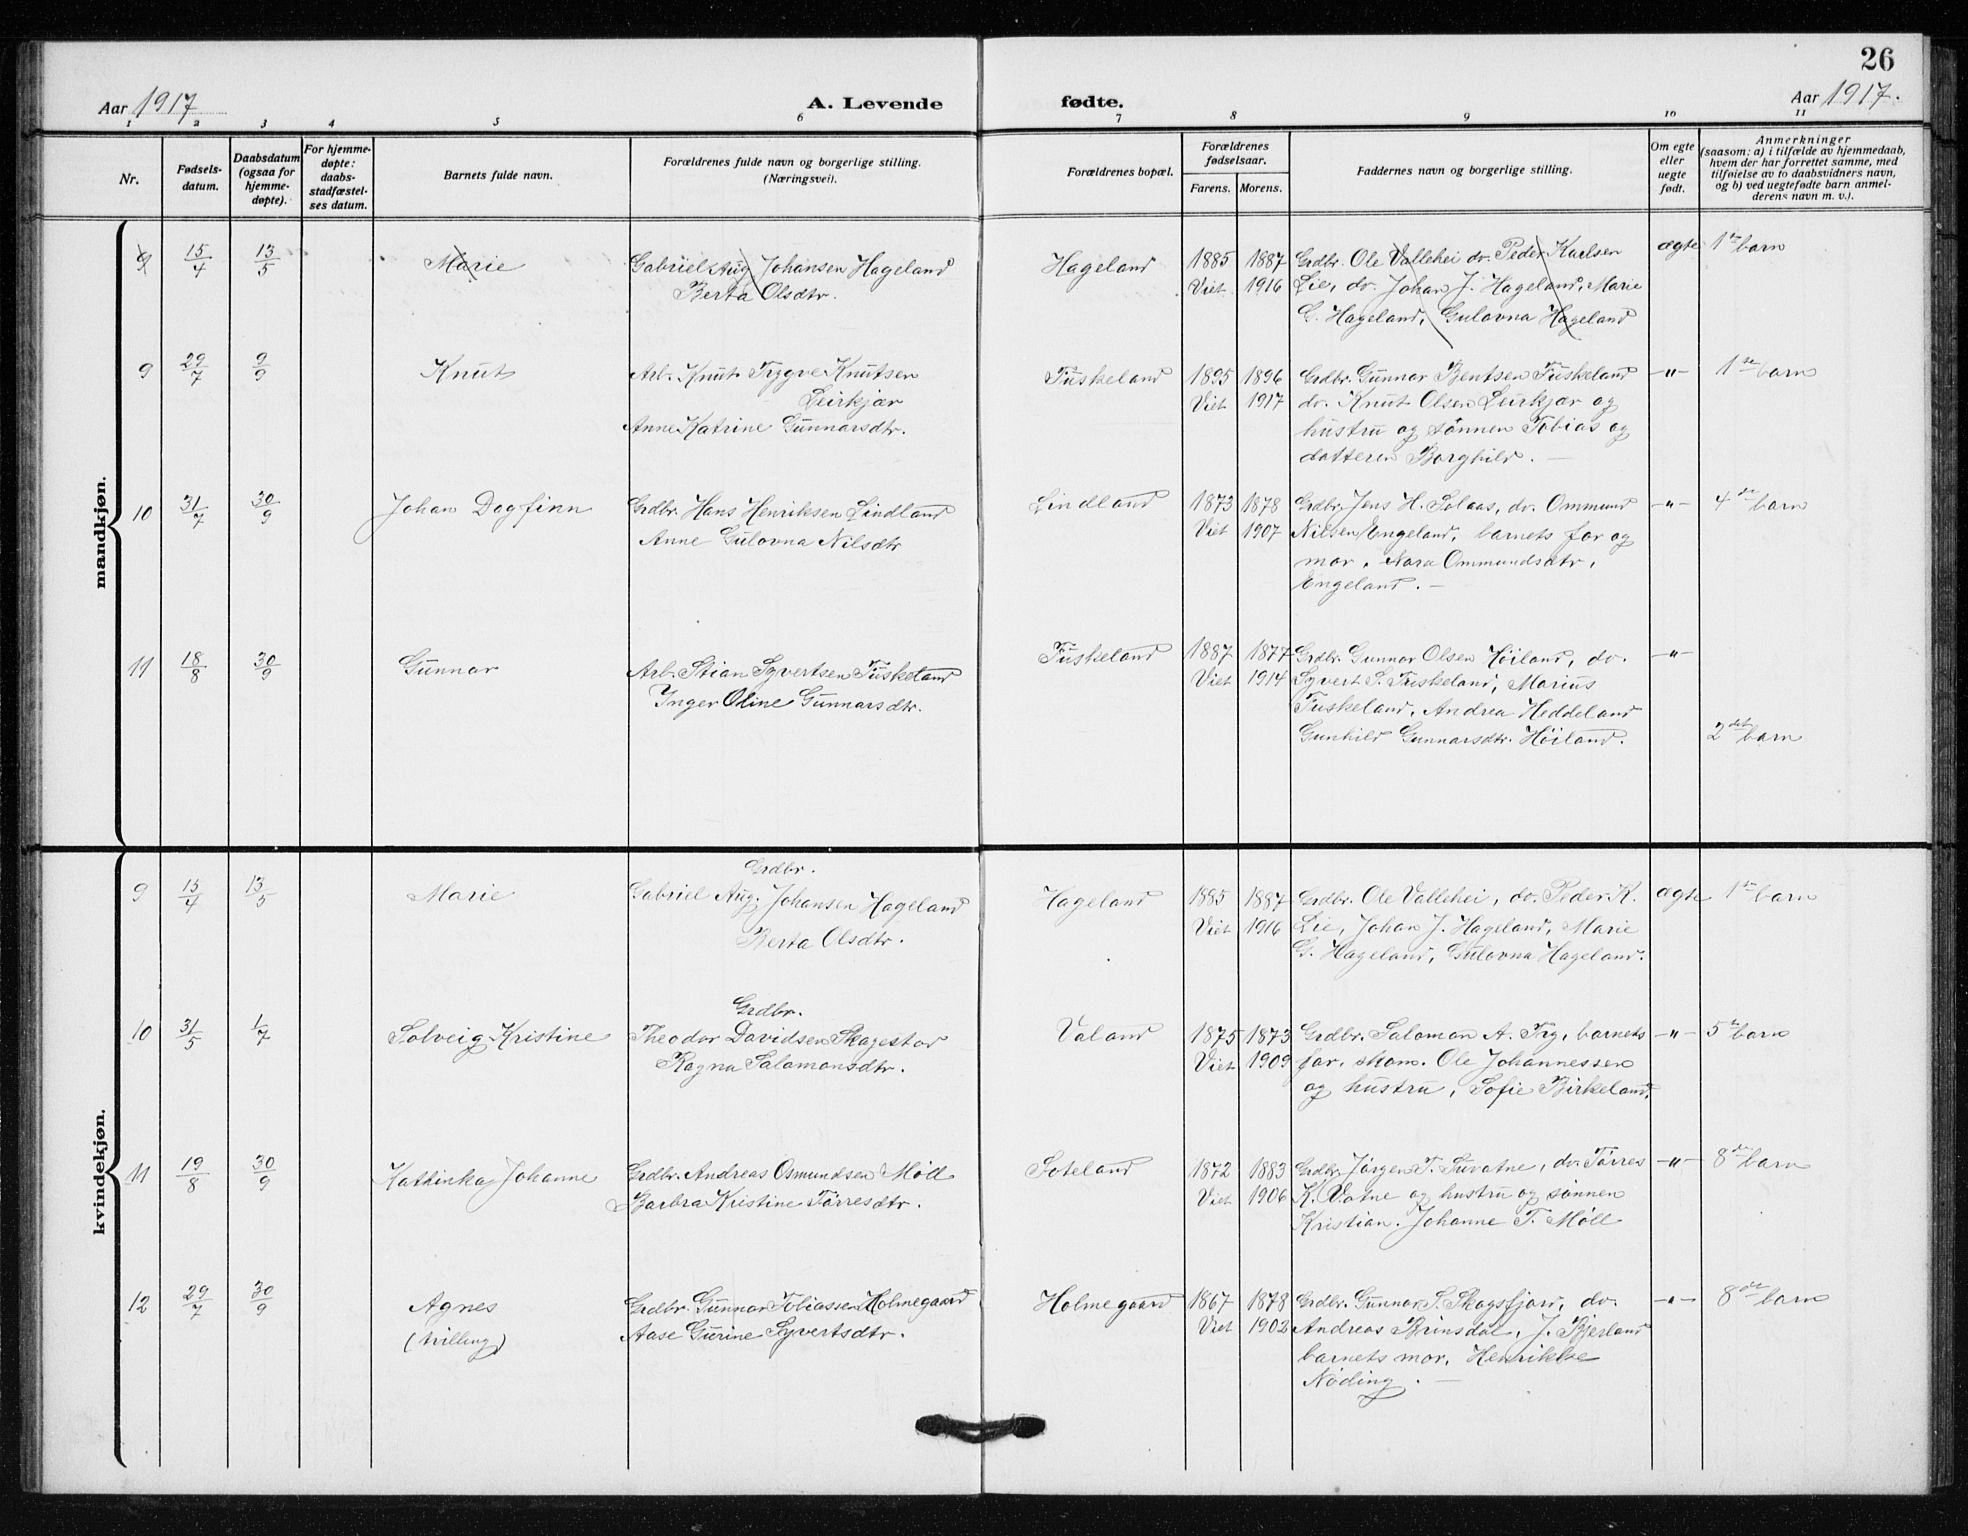 26
Aar 1917
A. Levende fødte.
Aar 1917.
1 2 3 4 5 6 7 8 9 10 11
Nr.
Fødsels-
datum.
Daabsdatum
(ogsaa for
hjemme-
døpte).
For hjemme-
døpte:
daabs-
stadfæstel-
ses datum.
Barnets fulde navn.
Forældrenes fulde navn og borgerlige stilling.
(Næringsvei).
Forældrenes bopæl.
Forældrenes
fødselsaar.
Farens. Morens.
Faddernes navn og borgerlige stilling.
Om egte
eller
uegte
født.
Anmerkninger
(saasom: a) i tilfælde av hjemmedaab,
hvem der har forrettet samme, med
tilføielse av to daabsvidners navn,
og b) ved uegtefødte barn anmel-
derens navn m. v.).
mandkjøn.
9 15/4 13/5 Marie Gabriel Aug Johansen Hageland Hageland 1885 1887 Grdbr. Ole Vallehei do. Peder Karlsen ægte 1ste barn
Berta Olsdtr. Viet 1916 Lie, do. Johan J. Hageland, Marie
G. Hageland, Gulovna Hageland
9 29/7 9/9 Knut Arb. Knut Trygve Knutsen Tuskeland 1895 1896 Grdbr. Gunnar Bentsen Tuskeland -"- 1ste barn
Leirkjær Viet 1917 do. Knut Olsen Leirkjær og
Anne Katrine Gunnarsdtr. hustru og sønnen Tobias og
datteren Borghild. —
10 31/7 30/9 Johan Dagfinn Grdbr. Hans Henriksen Lindland Lindland 1873 1878 Grdbr. Jens H. Solaas, do. Ommund -"- 4de barn
Anne Gulovna Nilsdtr Viet 1907 Nilsen Engeland, barnets far og
mor, Nora Ommundsdtr,
Engeland. —
11 18/8 30/9 Gunnar Arb. Stian Syvertsen Tuskeland Tuskeland 1887 1877 Grdbr. Gunnar Olsen Høiland, do. -"-
Inger Oline Gunnarsdtr. Viet 1914 Syvert S. Tuskeland, Marius
Tuskeland, Andrea Heddeland
Gunhild Gunnarsdtr. Høiland. 2det barn
kvindekjøn.
Grdbr.
9 15/4 13/5 Marie Gabriel Aug. Johansen Hageland Hageland 1885 1887 Grdbr. Ole Vallehei, do. Peder K. ægte 1ste barn
Berta Olsdtr. Viet 1916 Lie, Johan J. Hageland, Marie
G. Hageland, Gulovna Hageland.
Grdbr.
10 31/5 1/7 Solveig Kristine Theodor Davidsen Skagestad Valand 1875 1873 Grdbr. Salomon A. Try, barnets -"- 5te barn
Ragna Salomonsdtr. Viet 1909 far, skom. Ole Johannessen
og hustru, Sofie Birkeland.
11 19/8 30/9 Kathinka Johanne Grdbr. Andreas Osmundsen Møll Soteland 1872 1883 Grdbr. Jørgen T. Suvatne, do. Tørres -"- 8de barn
Barbra Kristine Tørresdtr. Viet 1906 K. Vatne og hustru og sønnen
Kristian. Johanne T. Møll
12 29/7 30/9 Agnes Grdbr. Gunnar Tobiassen Holmegaard Holmegaard 1867 1878 Grdbr. Gunnar S. Skogsfjord, do. -"- 8de barn
(trilling) Aase Gurine Syvertsdtr. Viet 1902 Andreas Brinsdal, J. Bjerland
barnets mor, Henrikke
Nøding. —